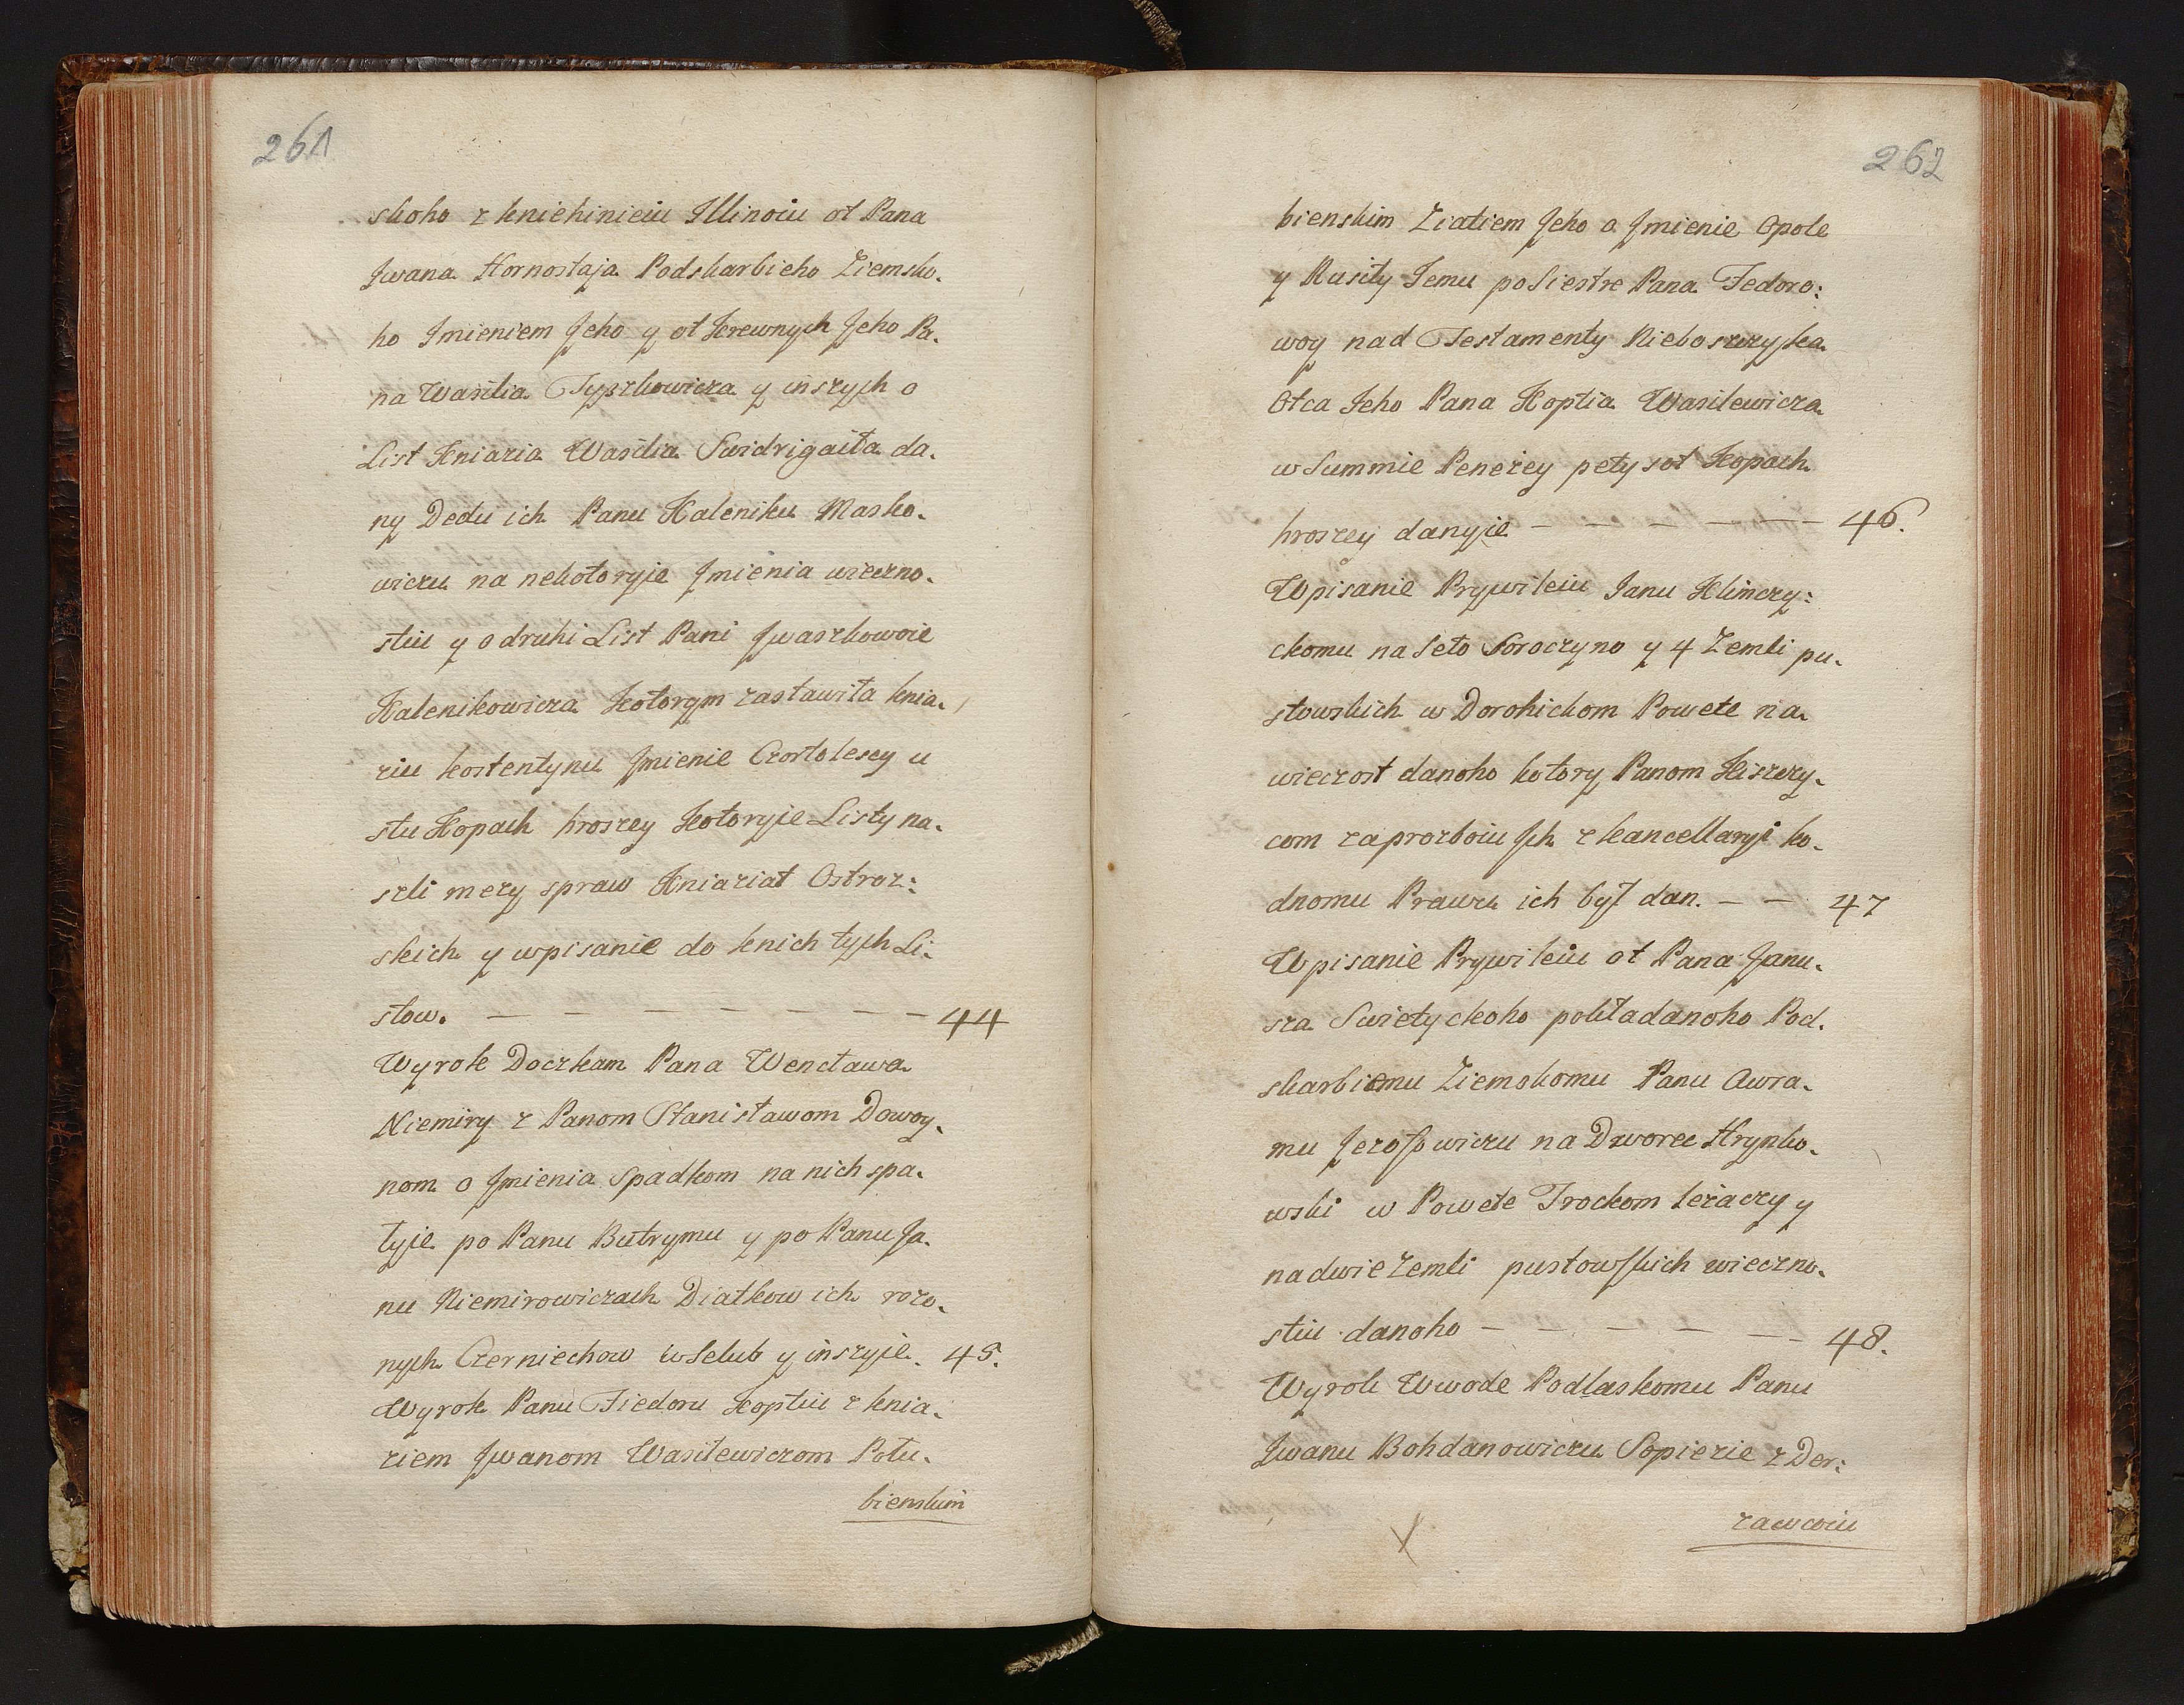 261
skoho z kniehinieiu Illinoiu ot Pana
Jwana Hornostaja Podskarbieho Ziemsko-
ho Jmieniem Jeho y ot Krewnych Jeho Pa-
na Wasilia Tyszkowicza y inszych o
List Kniazia Wasilia Swidrigaiła da-
ny Dedu ich Panu Kaleniku Masko-
wiczu na nekotoryje Jmienia wieczno-
stiu y o druhi List Pani Jwaszkowoie
Kalenikowicza Kotorym zastawiła knia-
ziu kostentynu Jmienie Czortolescy u
stu Kopach hroszey Kotoryje Listy na-
szli mezy spraw Kniaziat Ostroz:
skich y wpisanie do knich tych Li-
stow. — — — — — — — 44
Wyrok Doczkam Pana Wencława
Niemiry z Panom Stanisławom Dowoy-
nom o Jmienia Spadkom na nich spa-
łyje po Panu Butrymu y po Panu Ja-
nu Niemirowiczach Diatkow ich rozo-
nych Czerniechow w Selub y inszyje. 45.
Wyrok Panu Fiedoru Koptiu z knia-
ziem Jwanom Wasilewiczom Połu-
bienskim
262
bienskim Ziatiem Jeho o Jmienie Opole
y Rusiły Jemu po Siestre Pana Fedoro:
woy nad Testamenty Nieboszczyka
Otca Jeho Pana Koptia Wasilewicza
w Summie Penezey pety sot Kopach
hroszey danyje — — — — — 46.
Wpisanie Prywileiu Janu Klimczy:
ckomu na Seło Soroczyno y 4 Zemli pu-
stowskich w Dorohickom Powete na
wieczost danoho kotory Panom Kiszczy-
com za prozboiu Jch z kancellaryi ho-
dnomu Prawu ich był dan. — — 47
Wpisanie Prywileiu ot Pana Janu-
sza Swietyckoho pokładanoho Pod-
skarbiemu Ziemskomu Panu Awra-
mu Jezofowiczu na Dworec Hrynko-
wski w Powete Trockom leżaczy y
na dwie Zemli pustowskich wieczno-
stiu danoho — — — — — 48.
Wyrok Wwode Podlaskomu Panu
Jwanu Bohdanowiczu Sopiezie z Der:
zawcoiu